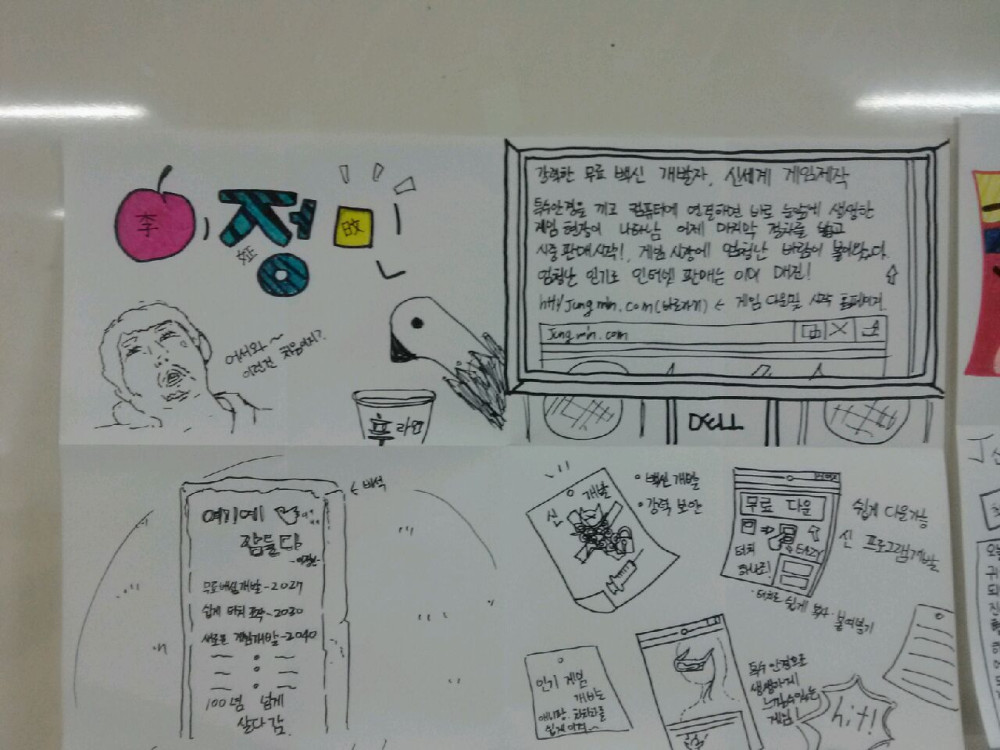 李
정
敃
어서와~
이런건 처음이지?
휴
라면
강력한 무료 백신 개발자, 신세계 게임제작
특수안경을 끼고 컴퓨터에 연결하면 바로 눈앞에 생생한
게임 현장이 나타남 어제 마지막 절차를
시중 판매시작!, 게임 시장에 엄청난 바람이 불어왔다.
엄청난 인기로 인터넷 판매는 이미 매진!
Jung min.com(바로가기) ← 게임 다운및 시작 홈페이지.
Jung min.com
DELL
←비석
여기에
잠들다
무료백신개발-2027
쉽게 터치 조작-2030
새로운 게임개발-2040
100년 넘게
살다 감.
신 개발
•백신 개발
•강력 보안
무료 다운
터치
하나로!
EAZY
쉽게 다운가능
신 프로그램개발
•터치로 쉽게 복사•붙여넣기
인기 게임
개발는
쉽게
특수 안경으로
생생하게
느낄수있는
게임!
hit!